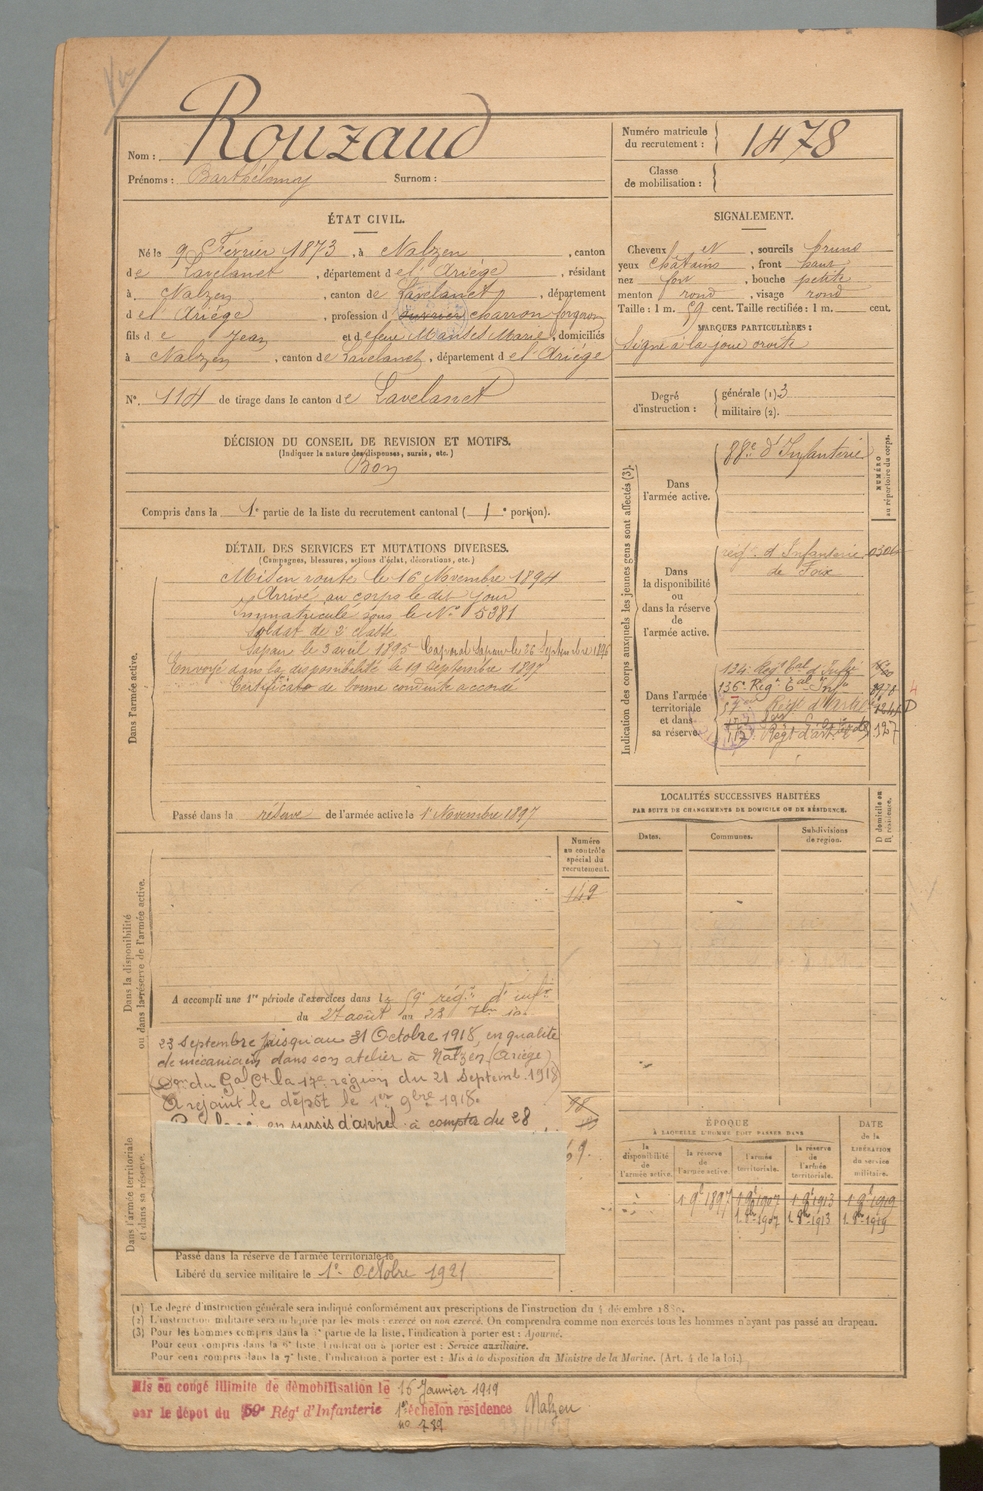 Nom : Rouzaud
Prénoms : Barthélemy Surnom :
Numéro matricule
du recrutement : 1478
Classe
de mobilisation :
ÉTAT CIVIL.
Né le 9 Février 1873, à Nalzen, canton
de Lavelanet, département de l'Ariège, résidant
à Nalzen, canton de Lavelanet, département
de l'Ariège, profession d charron forgeron
fils de Jean et de feue Marie, domiciliés
à Nalzen, canton de Lavelanet, département de l'Ariège
N° 114 de tirage dans le canton de Lavelanet
DÉCISION DU CONSEIL DE REVISION ET MOTIFS.
(Indiquer la nature des dispenses, sursis, etc.)
Bon
Compris dans la 1e partie de la liste du recrutement cantonal ( 1e portion).
DÉTAIL DES SERVICES ET MUTATIONS DIVERSES.
(Campagnes, blessures, actions d'éclat, décorations, etc.)
Dans l'armée active.
Mis en route le 16 Novembre 1894
Arrivé au corps le dit jour
Immatriculé sous le N° 5381
Soldat de 2e classe
Sapeur le 3 avril 1895 Caporal Sapeur le 26 Septembre 1896
Envoyé dans la disponibilité le 19 Septembre 1897
Certificat de bonne conduite accordé
Passé dans la réserve de l'armée active le 1 Novembre 1897
Dans la disponibilité
ou dans la réserve de l'armée active.
Numéro
au contrôle
spécial du
recrutement.
149
A accompli une 1re période d'exercices dans le 59e régt d'infie
du 27 août au 23
23 Septembre jusqu'au 31 Octobre 1918, en qualité
de mécanicien dans son atelier à Nalzen (Ariège)
(Don du Gal Ct la 17e région du 21 Septemb. 1918)
A rejoint le dépôt le 1er 9bre 1918.
en sursis d'appel à compter du 28
Dans l'armée territoriale
et dans sa réserve.
Passé dans la réserve de l'armée territoriale le
Libéré du service militaire le 1er Octobre 1921
SIGNALEMENT.
Cheveux et N, sourcils bruns
yeux châtains, front haut
nez fort, bouche petite
menton rond, visage rond
Taille : 1 m. 59 cent. Taille rectifiée : 1 m. cent.
MARQUES PARTICULIÈRES :
Signe à la joue droite
Degré
d'instruction :
générale (1) 3
militaire (2).
Indication des corps auxquels les jeunes gens sont affectés (3).
NUMÉRO
au répertoire du corps.
Dans
l'armée active.
88e d'Infanterie
Dans
la disponibilité
ou
dans la réserve
de
l'armée active.
régt d'Infanterie
de Foix
Dans l'armée
territoriale
et dans
sa réserve.
134e Regt tal d'Infie
136e Régt Tal Infie
127
LOCALITÉS SUCCESSIVES HABITÉES
PAR SUITE DE CHANGEMENTS DE DOMICILE OU DE RÉSIDENCE.
Dates.
Communes.
Subdivisions
de région.
D domicile ou
R. résidence.
ÉPOQUE
À LAQUELLE L'HOMME DOIT PASSER DANS
DATE
de la
LIBÉRATION
du service
militaire.
la
disponibilité
de
l'armée active.
la réserve
de
l'armée active.
l'armée
territoriale.
la réserve
de
l'armée
territoriale.
1 9e 1897 1 9e 1907 1 9e 1913 1 9e 1919
1 8bre 1907 1 8bre 1913 1 8bre 1919
(1) Le degré d'instruction générale sera indiqué conformément aux prescriptions de l'instruction du 4 décembre 1889.
(2) L'instruction militaire sera indiquée par les mots : exercé ou non exercé. On comprendra comme non exercés tous les hommes n'ayant pas passé au drapeau.
(3) Pour les hommes compris dans la partie de la liste, l'indication à porter est : Ajourné.
Pour ceux compris dans la 6e liste, l'indication à porter est : Service auxiliaire.
Pour ceux compris dans la 7e liste, l'indication à porter est : Mis à la disposition du Ministre de la Marine. (Art. 4 de la loi.)
Mis en congé illimité de démobilisation le 16 Janvier 1919
par le dépôt du 59e Régt d'Infanterie 1er échelon résidence Nalzen
no 789